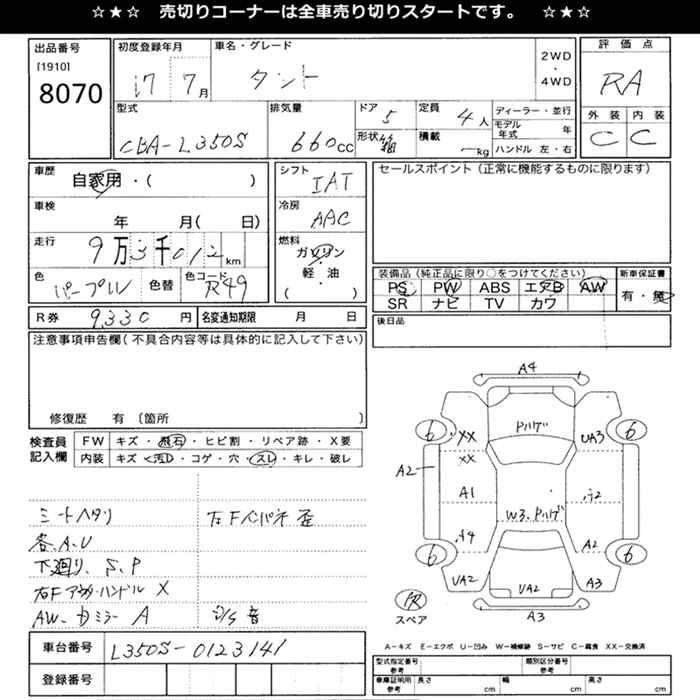 ☆★☆ 売切りコーナーは全車売り切りスタートです。 ☆★☆
出品番号 初度登録年月 車名・グレード 評価点
[1910] 8070 17 7月 タント 2WD・4WD RA
型式 排気量 ドア 定員 ディーラー・並行 外装 内装
CBA-L350S 660cc 5 4人 モデル年式 年 C C
形状 積載 kg ハンドル 左・右
車歴 自家用・( ) シフト IAT セールスポイント(正常に機能するものに限ります)
車検 年 月( 日) 冷房 AAC
走行 9万3千012km 燃料 ガソリン・軽油 ( )
色 パープル 色替 色コード R49
装備品(純正品に限り○をつけてください) 新車保証書
PS PW ABS エアB AW 有・無
SR ナビ TV カワ
R券 9,330円 名変通知期限 月 日 後日品
注意事項申告欄(不具合内容等は具体的に記入して下さい)
修復歴 有〔箇所 〕
検査員記入欄 FW キズ・飛石・ヒビ割・リペア跡・X要
内装 キズ・汚レ・コゲ・穴・スレ・キレ・破レ
シートヘタリ 左Fインパネ歪
各、A、U
下廻り、S、P
右Fアウターハンドル X
AW、ドミラー A
音
A4
Pハゲ
6 XX UA3 6
XX
A2
A1
W3、Pハゲ
A4 A2
6 6
UA2 UA2 A3
スペア A3
車台番号 L350S-0123141
登録番号
A-キズ E-エクボ U-凹み W-補修跡 S-サビ C-腐食 XX-交換済
型式指定番号 参考 類別区分番号 参考
車庫証明用 参考 長さ cm 幅 cm 高さ cm